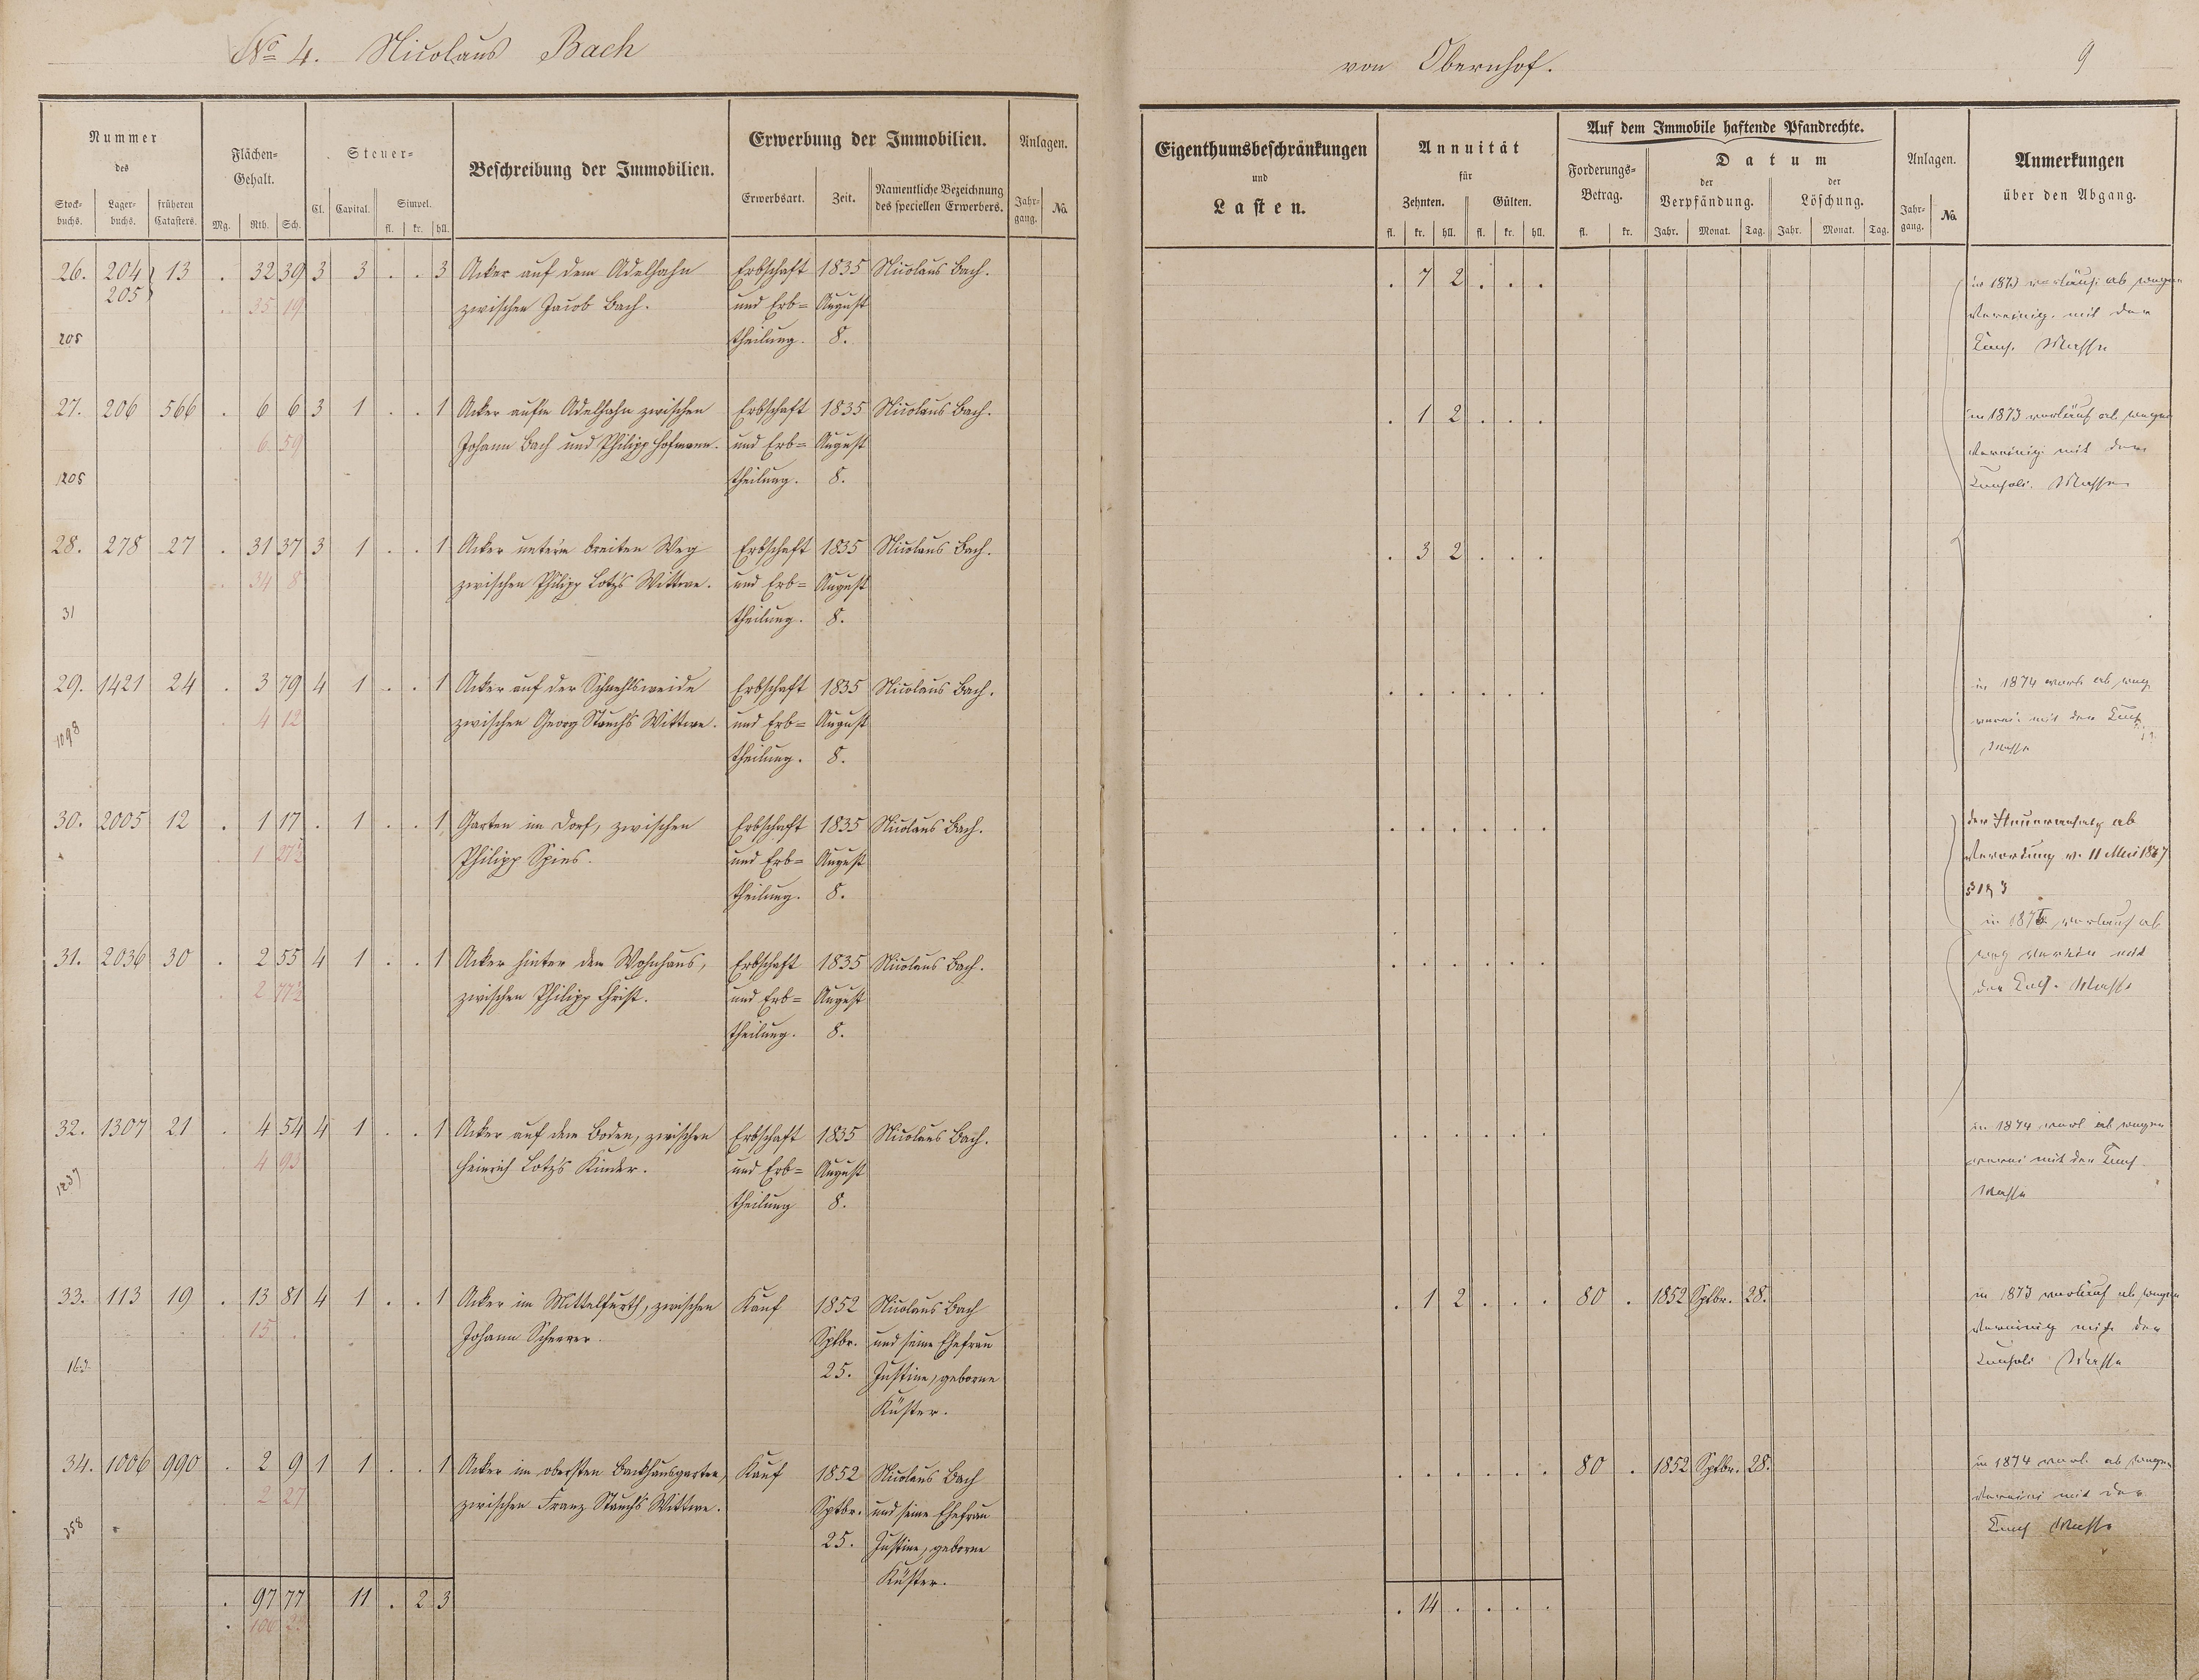 No 4. Nicolaus Bach
von Obernhof.
9
Nummer
des
Stock-
buchs.
Lager-
buchs.
früheren
Catasters.
Flächen-
Gehalt.
Mg. Rth. Sch.
Steuer-
Cl. Capital. Simpel.
fl. kr. hll.
Beschreibung der Immobilien.
Erwerbung der Immobilien.
Erwerbsart. Zeit.
Namentliche Bezeichnung
des speciellen Erwerbers.
Anlagen.
Jahr-
gang.
No.
Eigenthumsbeschränkungen
und
Lasten.
Annuität
für
Zehnten. Gülten.
fl. kr. hll. fl. kr. hll.
Auf dem Immobile haftende Pfandrechte.
Forderungs-
Betrag.
fl. kr.
Datum
der
Verpfändung.
der
Löschung.
Jahr. Monat. Tag. Jahr. Monat. Tag.
Anlagen.
Jahr-
gang.
No.
Anmerkungen
über den Abgang.
26. 204 13 . 32 39 3 3 . . 3 Acker auf dem Adelhahn Erbschaft 1835 Nicolaus Bach. . 7 2 . . .
205 35 19 zwischen Jacob Bach. und Erb= August
205 theilung. 8.
in 1873 vorläuf. ab wegen
Vereinig. mit der
Cons. Masse
27. 206 566 . 6 6 3 1 . . 1 Acker aufm Adelhahn zwischen Erbschaft 1835 Nicolaus Bach. . 1 2 . . .
6 59 Johann Bach und Philipp Hofmann. und Erb= August
205 theilung. 8.
in 1873 vorläuf ab wegen
Vereinig mit der
Consoli. Masse
28. 278 27 . 31 37 3 1 . . 1 Acker unterm breiten Weg Erbschaft 1835 Nicolaus Bach. . 3 2 . . .
34 8 zwischen Philipp Lotz's Wittwe. und Erb= August
31 theilung. 8.
29. 1421 24 . 3 79 4 1 . . 1 Acker auf der Erbschaft 1835 Nicolaus Bach. . . . . . .
4 12 zwischen Georg Stauch's Wittwe. und Erb= August
1098 theilung. 8.
in 1874 vorl. ab weg
verei. mit der Cons
Masse
30. 2005 12 . 1 17 . 1 . . 1 Garten im Dorf, zwischen Erbschaft 1835 Nicolaus Bach. . . . . . .
1 27½ Philipp Spies. und Erb= August
theilung. 8.
der Steueransatz ab
Verordnung v. 11 Mai 1867
31. 2036 30 . 2 55 4 1 . . 1 Acker hinter dem Wohnhaus, Erbschaft 1835 Nicolaus Bach. . . . . . .
2 77½ zwischen Philipp Christ. und Erb= August
theilung. 8.
vorläuf ab
mit
der Cons. Masse
32. 1307 21 . 4 54 4 1 . . 1 Acker auf dem Boden, zwischen Erbschaft 1835 Nicolaus Bach. . . . . . .
4 93 Heinrich Lotz's Kinder. und Erb= August
1237 theilung 8.
in 1874 vorl ab wegen
verei mit der Cons
Masse
33. 113 19 . 13 81 4 1 . . 1 Acker im Mittelfurth, zwischen Kauf 1852 Nicolaus Bach . 1 2 . . . 80 . 1852 Sptbr. 28.
15 . Johann Scherer. Sptbr. und seine Ehefrau
25. Justine, geborne
Küster.
in 1873 vorläuf ab wegen
Vereinig mit der
Consoli Masse
34. 1006 990 . 2 9 1 1 . . 1 Acker im obersten Backhausgarten, Kauf 1852 Nicolaus Bach . . . . . . 80 . 1852 Sptbr. 28.
2 27 zwischen Franz Stauch's Wittwe. Sptbr. und seine Ehefrau
358 25. Justine, geborne
Küster.
in 1874 vorl. ab wegen
Vereini mit der
Cons Masse
. 97 77 11 . 2 3 . 14 . . . .